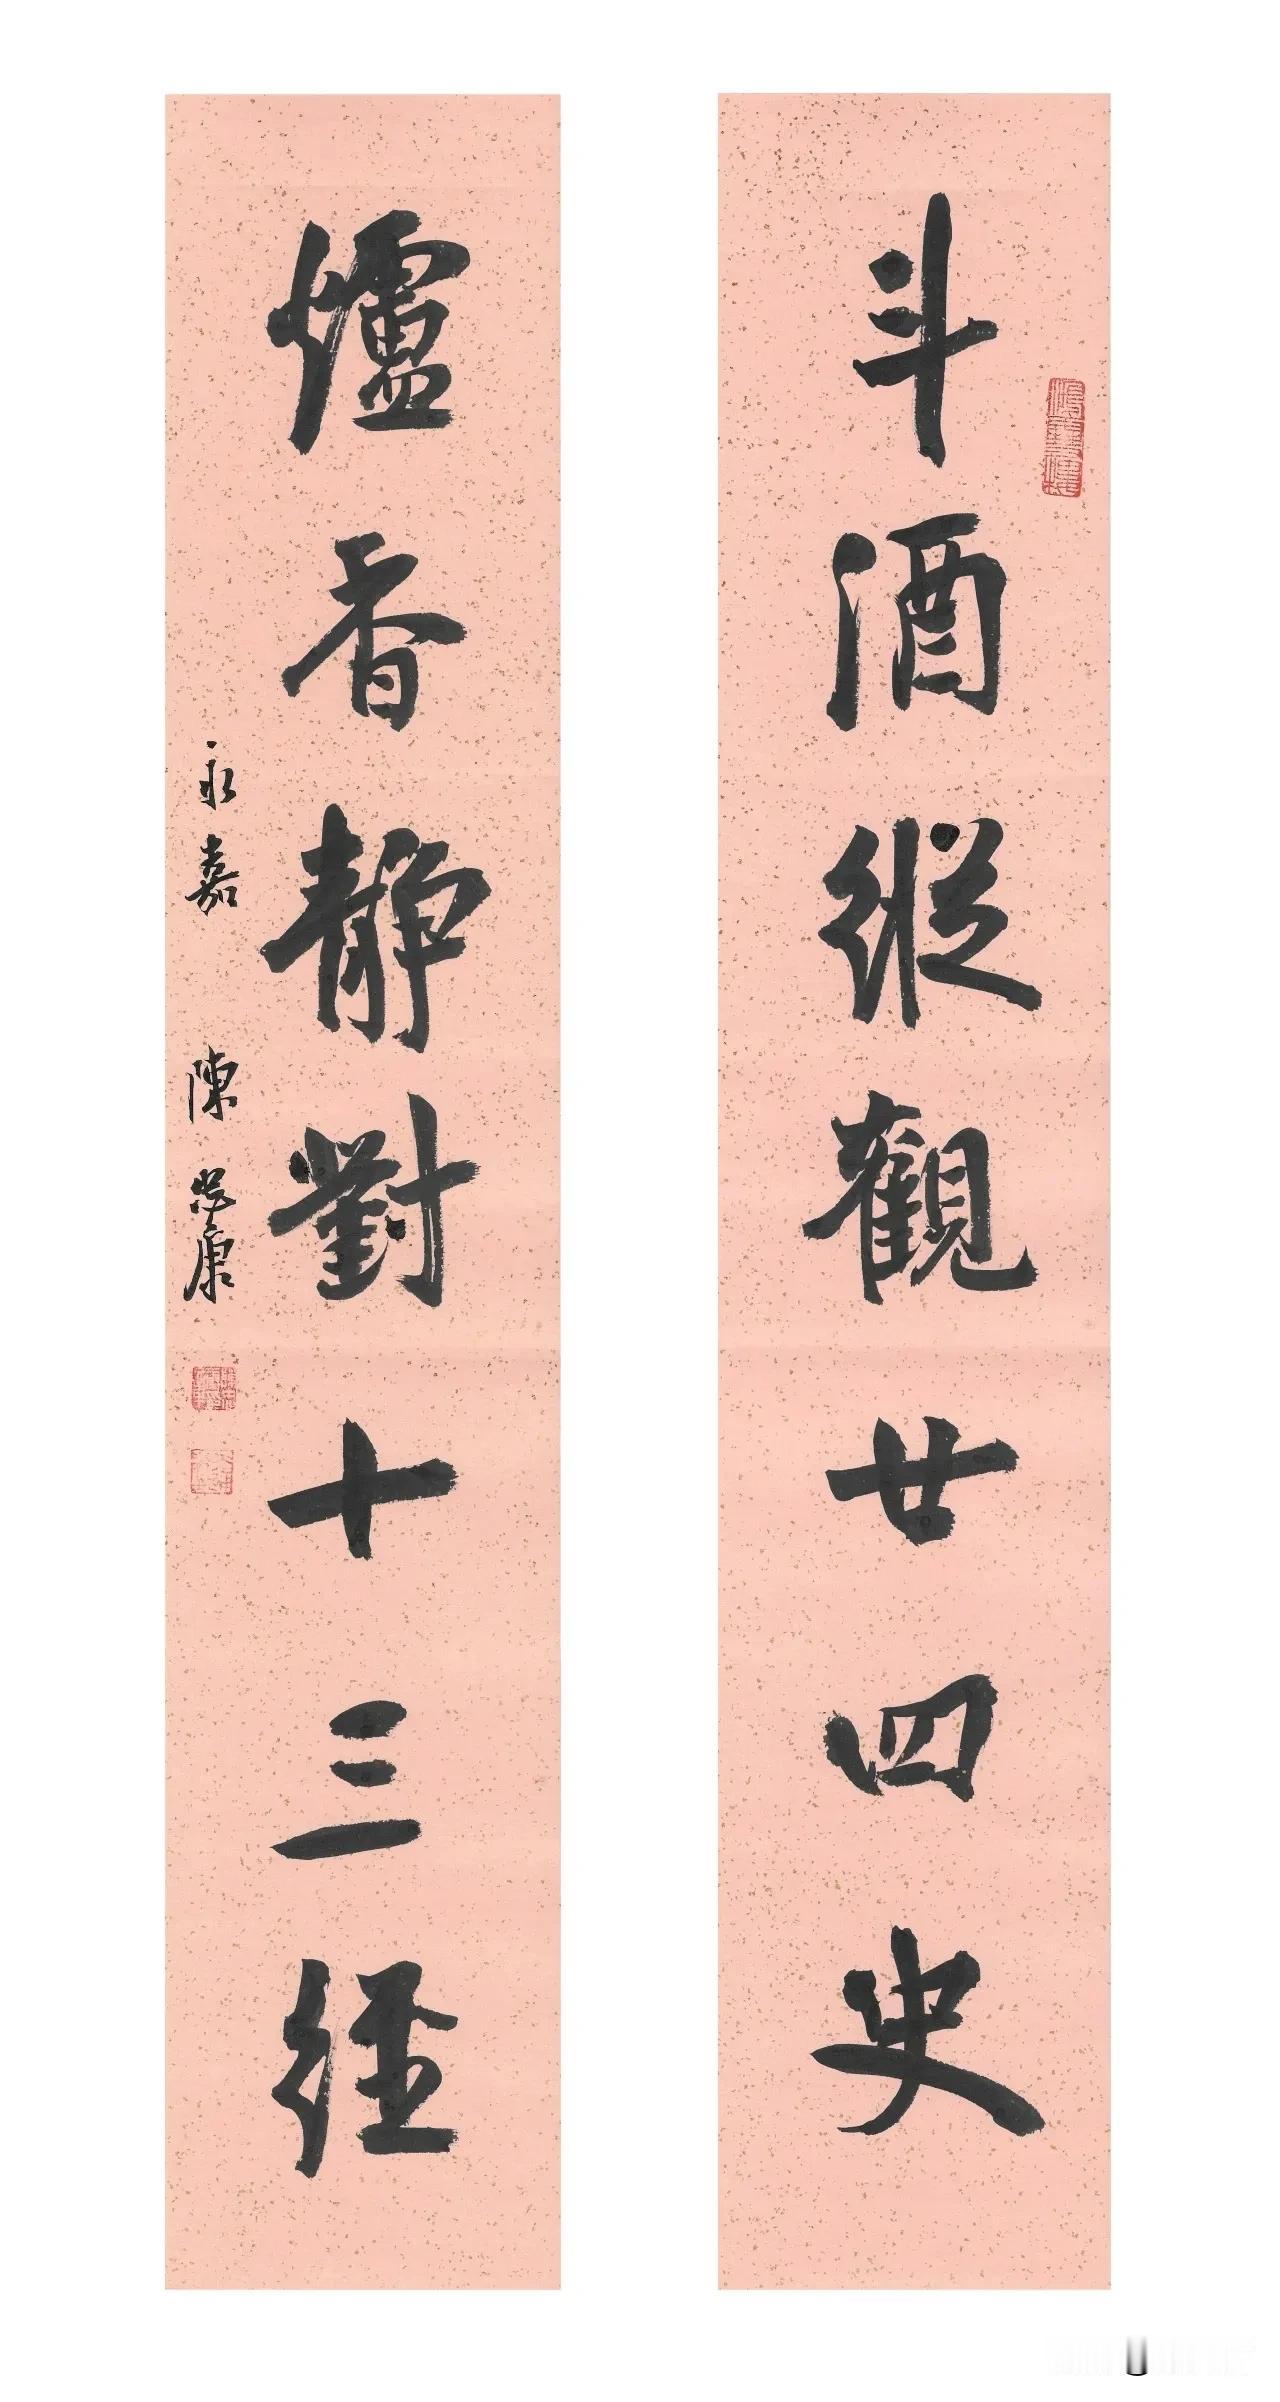 斗酒縱觀廿四史
爐香靜對十三經
永嘉 陳忠康